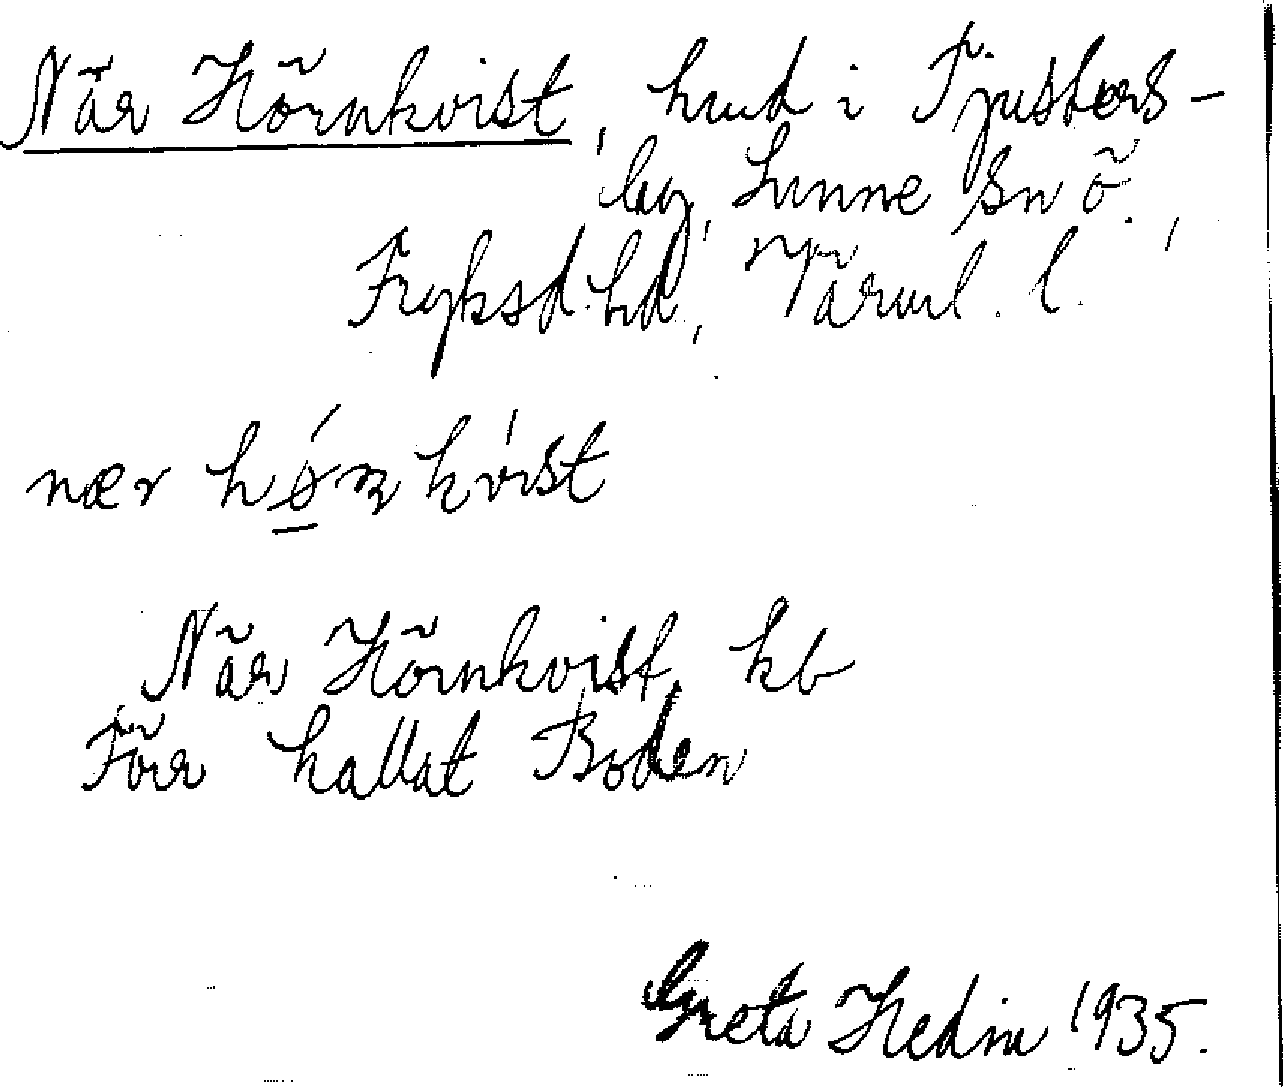 När Hörnkvist, hmd i Tjusters-
by, Sunne sn ö.,
Fryksd. hd, Värml. l.
nær hǿn kvist
När Hörnkvist, kb
Förr kallat Boden
Greta Hedin 1935.